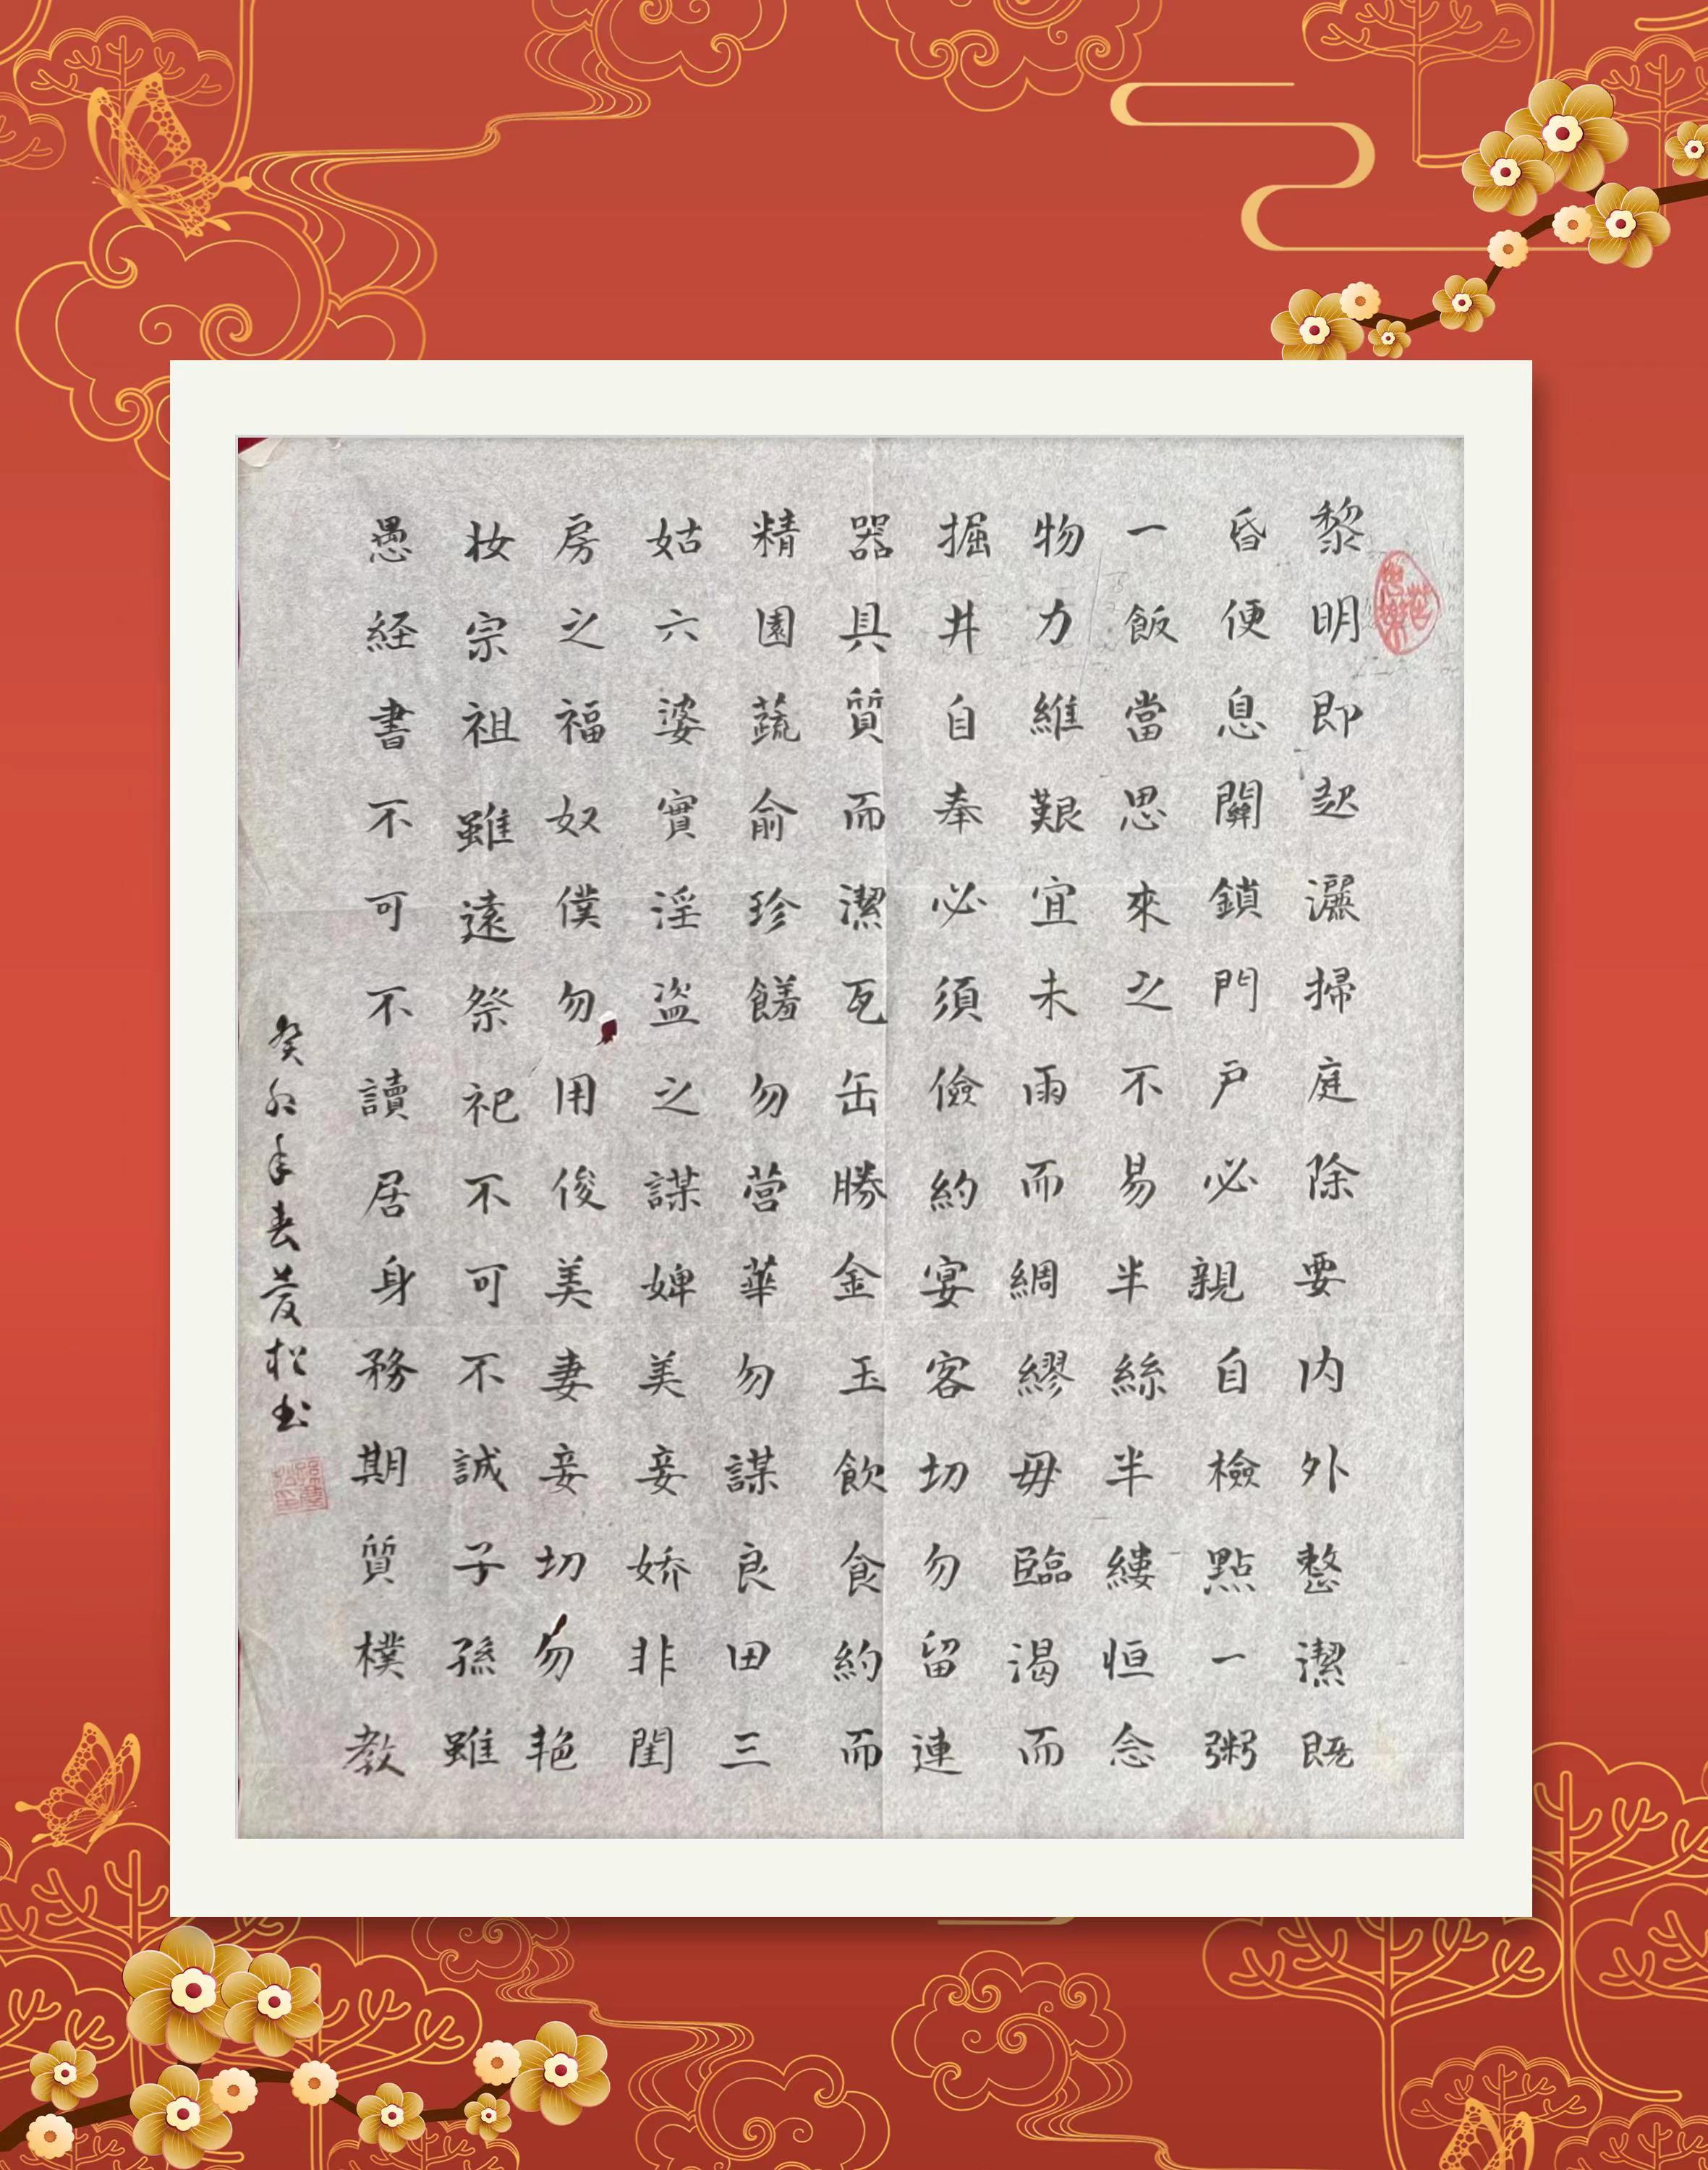 黎明即起灑掃庭除要内外整潔既
昏便息關鎖門戶必親自檢點一粥
一飯當思來之不易半絲半縷恒念
物力維艱宜未雨而綢繆毋臨渴而
掘井自奉必須儉約宴客切勿留連
器具質而潔瓦缶勝金玉飲食約而
精園蔬俞珍饈勿營華勿謀良田三
姑六婆實淫盗之謀婢美妾娇非閨
房之福奴僕勿用俊美妻妾切勿艳
妆宗祖雖遠祭祀不可不誠子孫雖
愚経書不可不讀居身務期質樸教
癸卯年春蔆松书